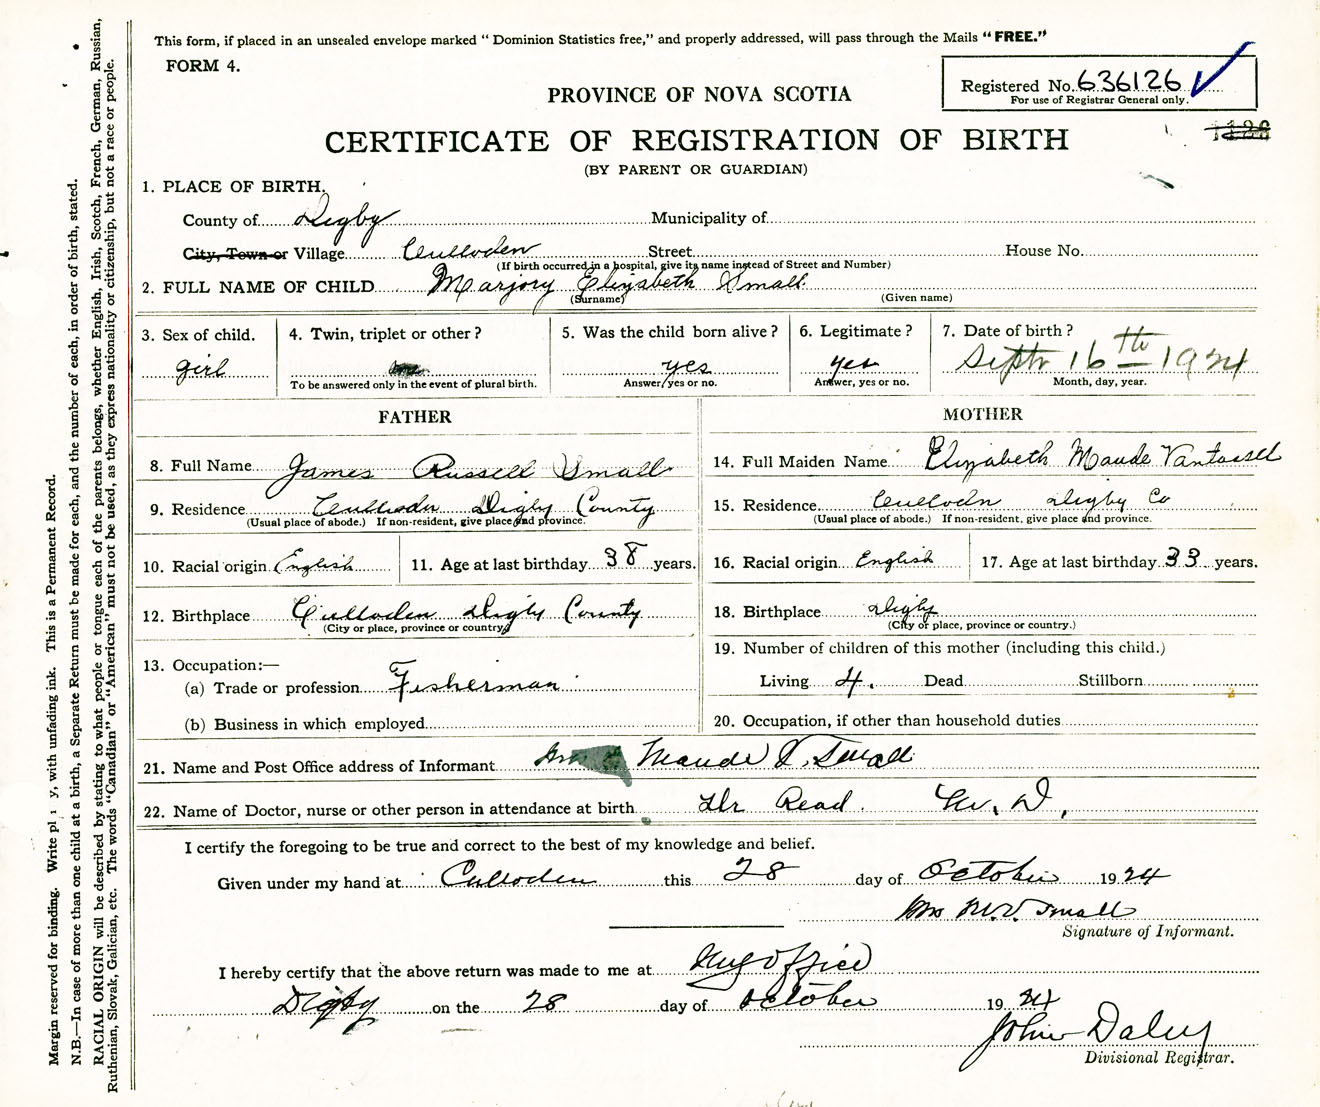 This form, if placed in an unsealed envelope marked “ Dominion Statistics free,” and properly addressed, will pass through the Mails “FREE.”
FORM 4.
Registered No. 636126
For use of Registrar General only.
PROVINCE OF NOVA SCOTIA
CERTIFICATE OF REGISTRATION OF BIRTH
(BY PARENT OR GUARDIAN)
1. PLACE OF BIRTH.
County of Digby Municipality of
City, Town or Village Culloden Street House No.
(If birth occurred in a hospital, give its name instead of Street and Number)
2. FULL NAME OF CHILD Marjory Elizabeth Small
(Surname) (Given name)
3. Sex of child. 4. Twin, triplet or other ? 5. Was the child born alive ? 6. Legitimate ? 7. Date of birth ?
girl yes yes Septr 16th 1924
To be answered only in the event of plural birth. Answer, yes or no. Answer, yes or no. Month, day, year.
FATHER MOTHER
8. Full Name James Russell Small 14. Full Maiden Name Elizabeth Maude Vantassell
9. Residence Culloden Digby County 15. Residence Culloden Digby Co
(Usual place of abode.) If non-resident, give place and province. (Usual place of abode.) If non-resident, give place and province.
10. Racial origin English 11. Age at last birthday 38 years. 16. Racial origin English 17. Age at last birthday 33 years.
12. Birthplace Culloden Digby County 18. Birthplace Digby
(City or place, province or country) (City or place, province or country.)
13. Occupation:— 19. Number of children of this mother (including this child.)
(a) Trade or profession Fisherman Living 4. Dead Stillborn
(b) Business in which employed 20. Occupation, if other than household duties
21. Name and Post Office address of Informant Mrs Maude V. Small
22. Name of Doctor, nurse or other person in attendance at birth Dr Read. M. D,
I certify the foregoing to be true and correct to the best of my knowledge and belief.
Given under my hand at Culloden this 28 day of October 1924
Mrs M.V. Small
Signature of Informant.
I hereby certify that the above return was made to me at My office
Digby on the 28 day of October 1924
John Daley
Divisional Registrar.
Margin reserved for binding. Write pl y, with unfading ink. This is a Permanent Record.
N.B.—In case of more than one child at a birth, a Separate Return must be made for each, and the number of each, in order of birth, stated.
RACIAL ORIGIN will be described by stating to what people or tongue each of the parents belongs, whether English, Irish, Scotch, French, German, Russian,
Ruthenian, Slovak, Galician, etc. The words “Canadian” or “American” must not be used, as they express nationality or citizenship, but not a race or people.